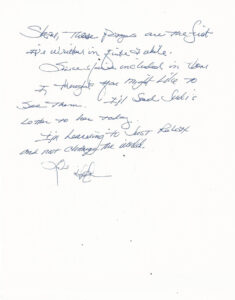 Steve, These pages are the first
I've written in quite a while.
Since you're included in them
I thought you might like to
see them. I'll send
Letter to her today.
I'm learning to just Relax
and not change the world.